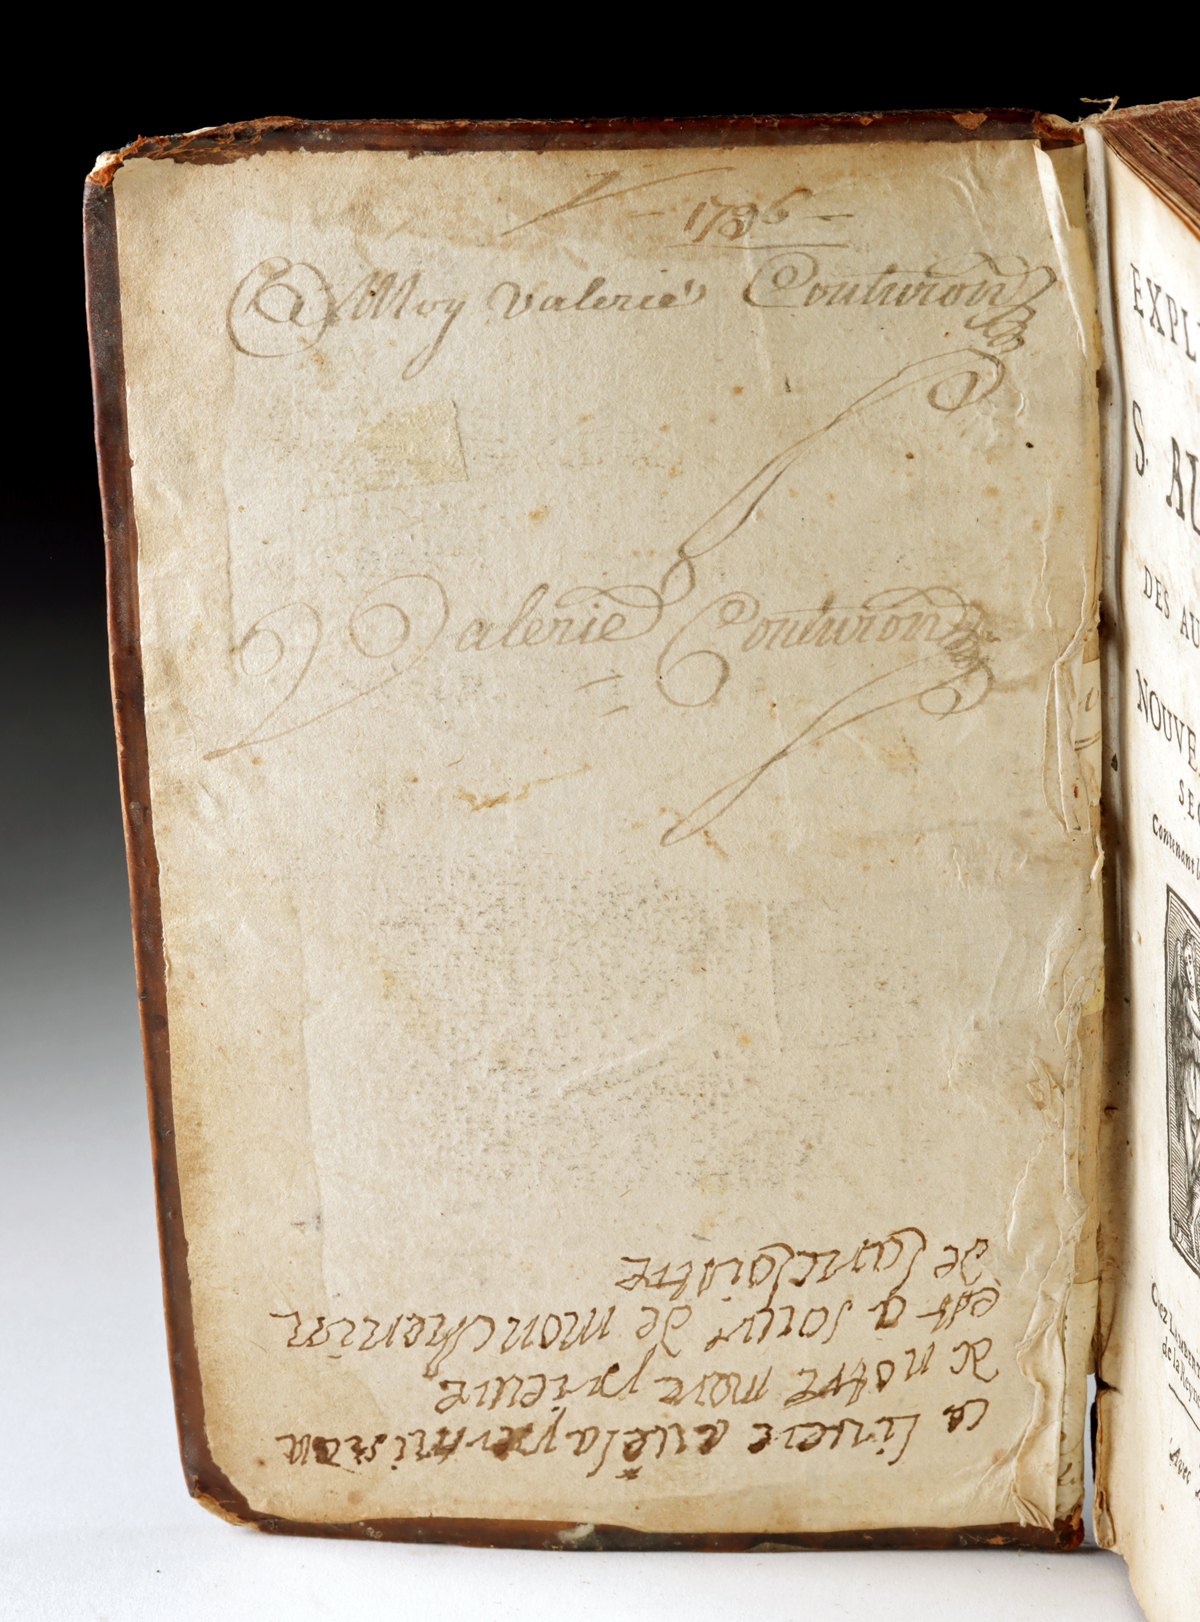 — 1786 —
A Moy Valerie Couturon
Valerie Couturon
ce livere avé la permision
de notre mare prieure
est a soeur de monchenin
de
EXPL
S. AU
DES AU
NOUVE
SEC
Contenant
Chez LAMBERT
de la
Avec